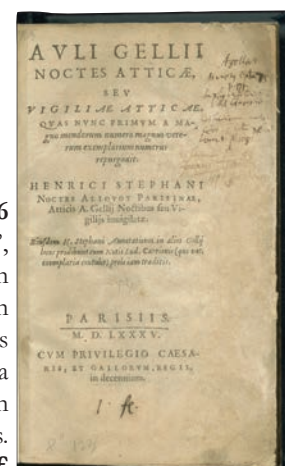 AVLI GELLII
NOCTES ATTICÆ,
SEV
VIGILIAE ATTICAE,
QVAS NVNC PRIMVM A MA-
gno mendorum numero magnus vete-
rum exemplarium numerus
repurgauit.
HENRICI STEPHANI
NOCTES ALIQVOT PARISINAE,
Atticis A. Gellij Noctibus seu Vi-
gilijs inuigilatæ.
Eiusdem H. Stephani Annotationes in alios Gellij
locos prodibunt cum Notis Lud. Carrionis (qui vet.
exemplaria contulit) prelo iam traditis.
PARISIIS.
M. D. LXXXV.
CVM PRIVILEGIO CAESA-
RIS, ET GALLORVM REGIS,
in decennium.
6
,
n
n
s
a
n
s.
f